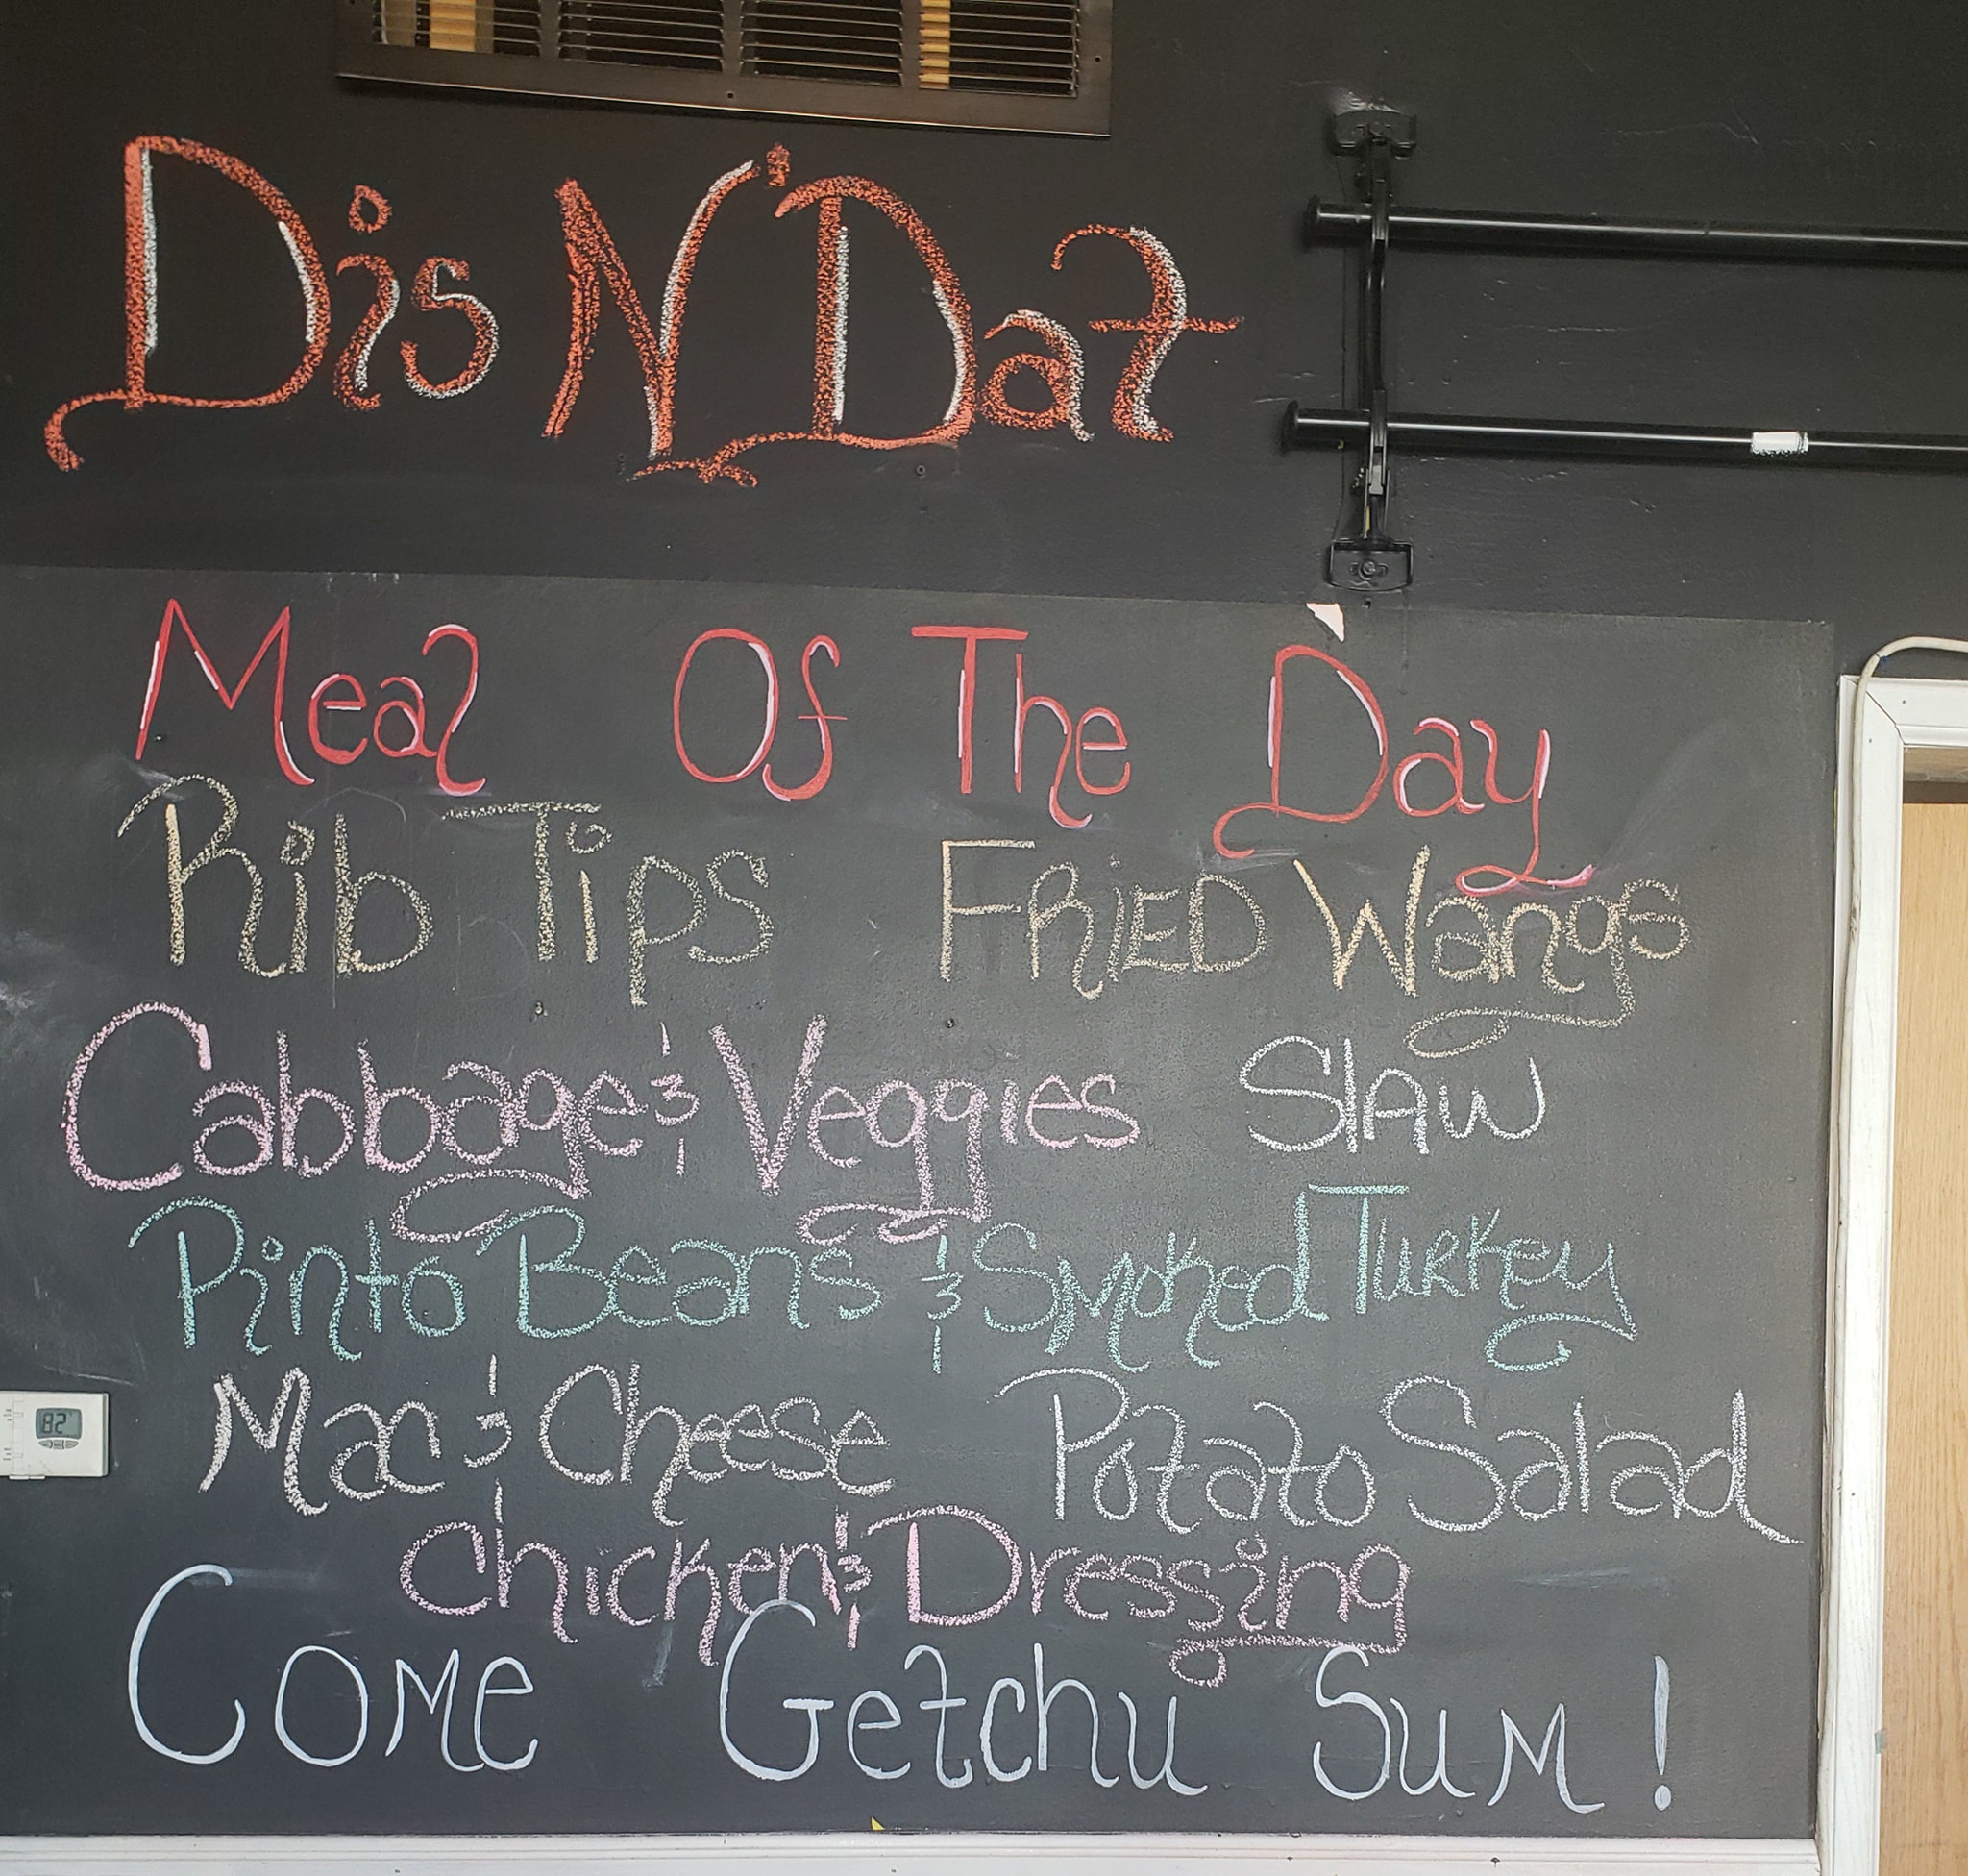 Dis N' Dat
Meal Of The Day
Rib Tips FRiED Wangs
Cabbage & Veggies SlAW
Pinto Beans & Smoked TURKEY
Mac & Cheese Potato Salad
Chicken & Dressing
COME Getchu SUM!
82°